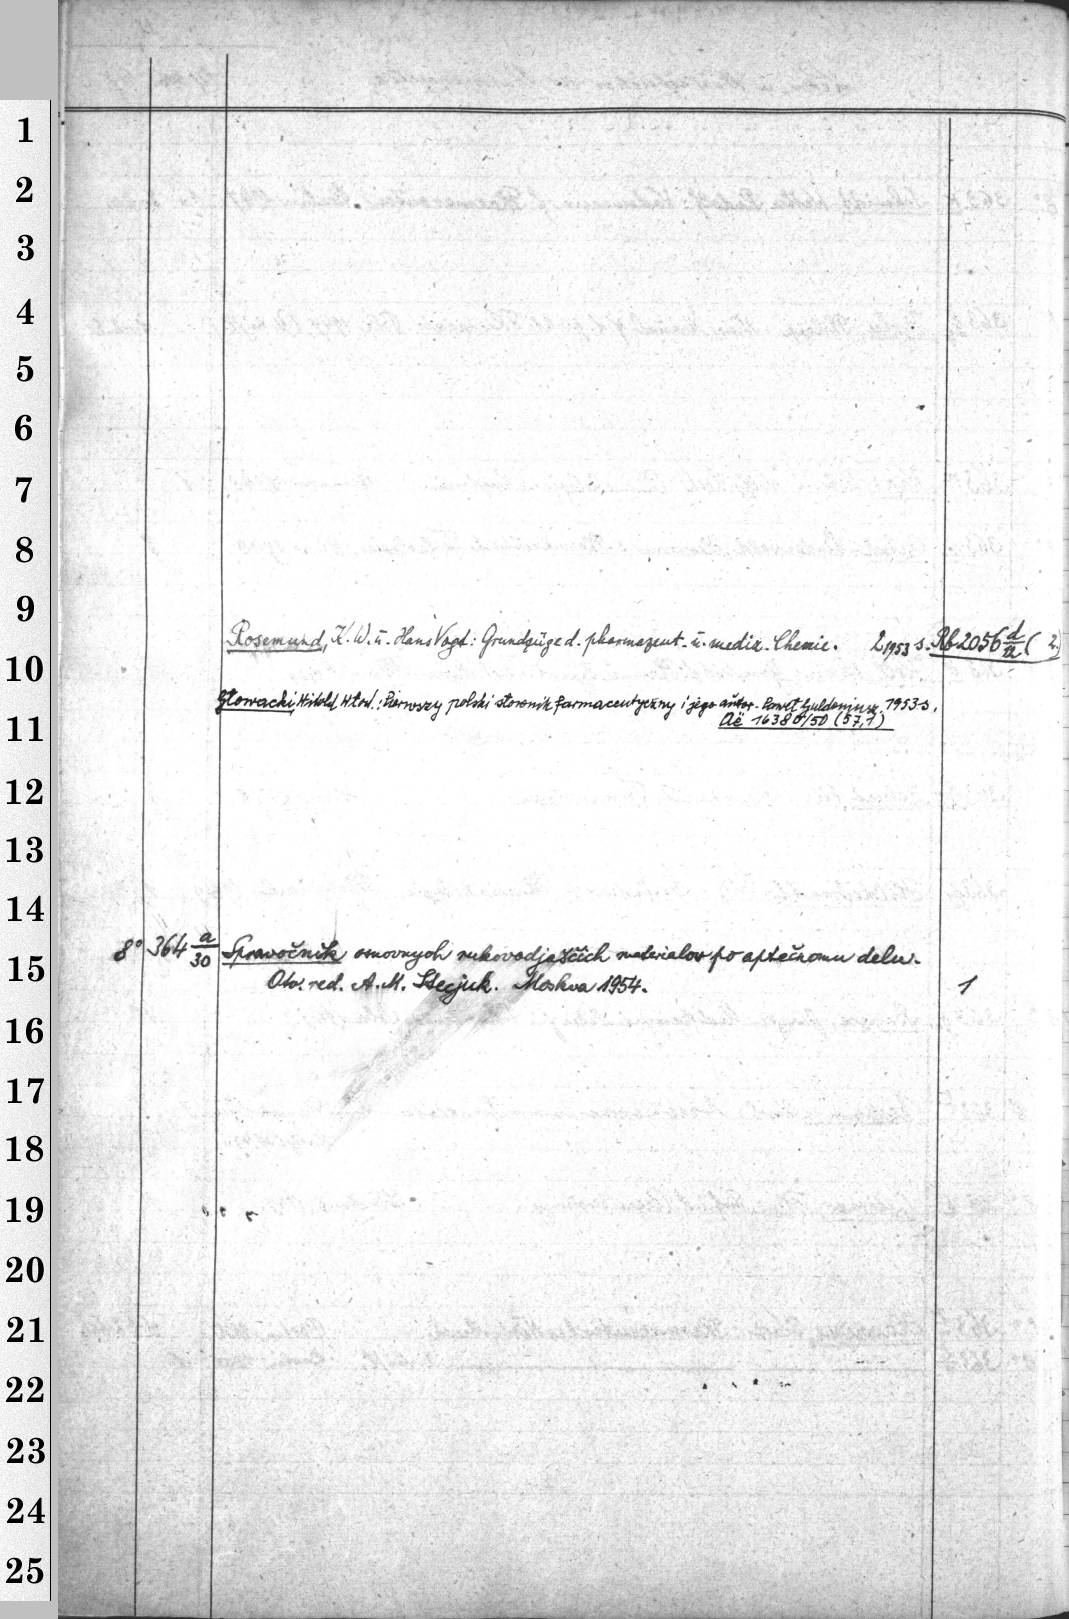 1
2
3
4
5
6
7
8
9
Rosemund, K. W. u. Hans Vogt: Grundzüge d. pharmazeut. u. mediz. Chemie. 2 1953 s. Rb 2056 d/a ( 2.)
10
Głowacki, Witold Wład.: Pierwszy polski słownik farmaceutyczny i jego autor. Paweł Guldeniusz. 1953 s.
Aë 16380/50 (57,1)
11
12
13
14
8° 364 a/30 Spravočnik osnovnych rukovodjaščich materialov po aptečnomu delu.
15
Otv. red. A. M. Stecjuk. Moskva 1954. 1
16
17
18
19
20
21
22
23
24
25